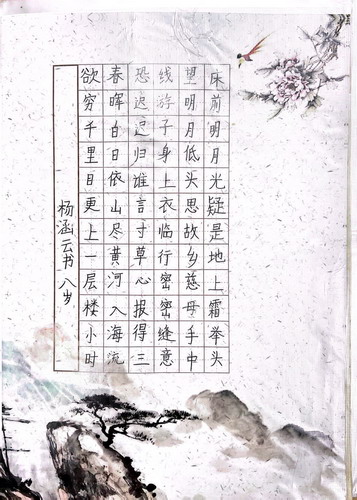 床前明月光疑是地上霜举头
望明月低头思故乡慈母手中
线游子身上衣临行密密缝意
恐迟迟归谁言寸草心报得三
春晖白日依山尽黄河入海流
欲穷千里目更上一层楼小时
杨涵云书八岁